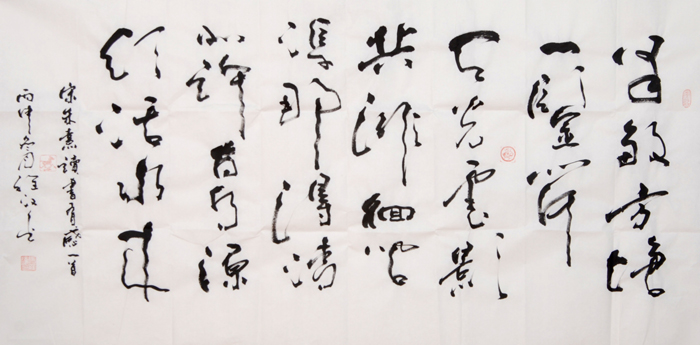 半畝方塘
一鑑開
天光雲影
共徘徊問
渠那得清
如許為有源
頭活水來
宋朱熹讀書有感一首
丙申